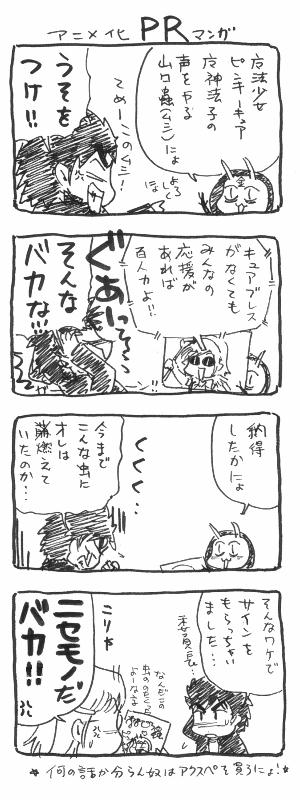 アニメ化PRマンガ
魔法少女
ピンキーキュア
魔神法子の
声をやる
山口蟲(ムシ)にょ
よろ
しくにょ
てめーこのムシ!
うそを
つけ!!
キュアブレス
がなくても
みんなの
応援が
あれば
百人力よ!!
ぐあってぇ〜
そんな
バカな!!!
納得
したかにょ
くくく…
今まで
こんな虫に
オレは
萌えて
いたのか…
そんなワケで
サインを
もらっちゃい
ました…
委員長…
なんだこの
虫の
ような
こりゃ
ニセモノだ
バカ!!
☆何の話か分らん奴はアウスペを買うにょ!☆